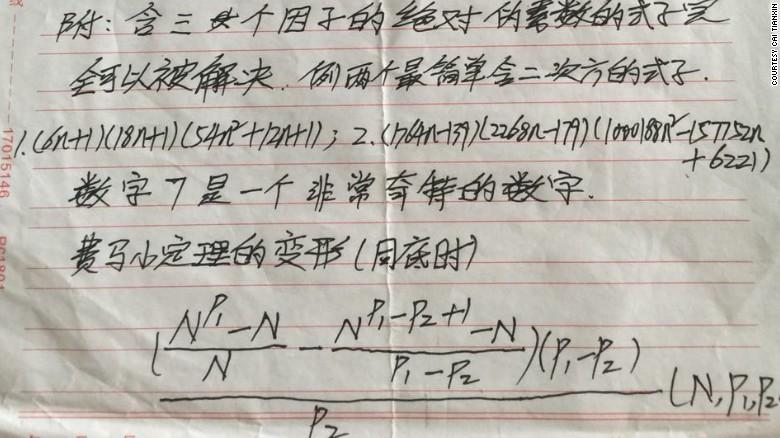 附: 含三个因子的绝对伪素数的式子完
全可以被解决. 例两个最简单含二次方的式子.
1. (6n+1)(18n+1)(54n²+12n+1); 2. (1764n-139)(2268n-179)(1000188n²-157752n
+6221)
数字7是一个非常奇特的数字.
费马小定理的变形(同底时)
((N^P₁-N)/N - (N^(P₁-P₂+1)-N)/(P₁-P₂))(P₁-P₂)
P₂
(N,P₁,P₂
17015146
COURTESY CAI TIANXIN